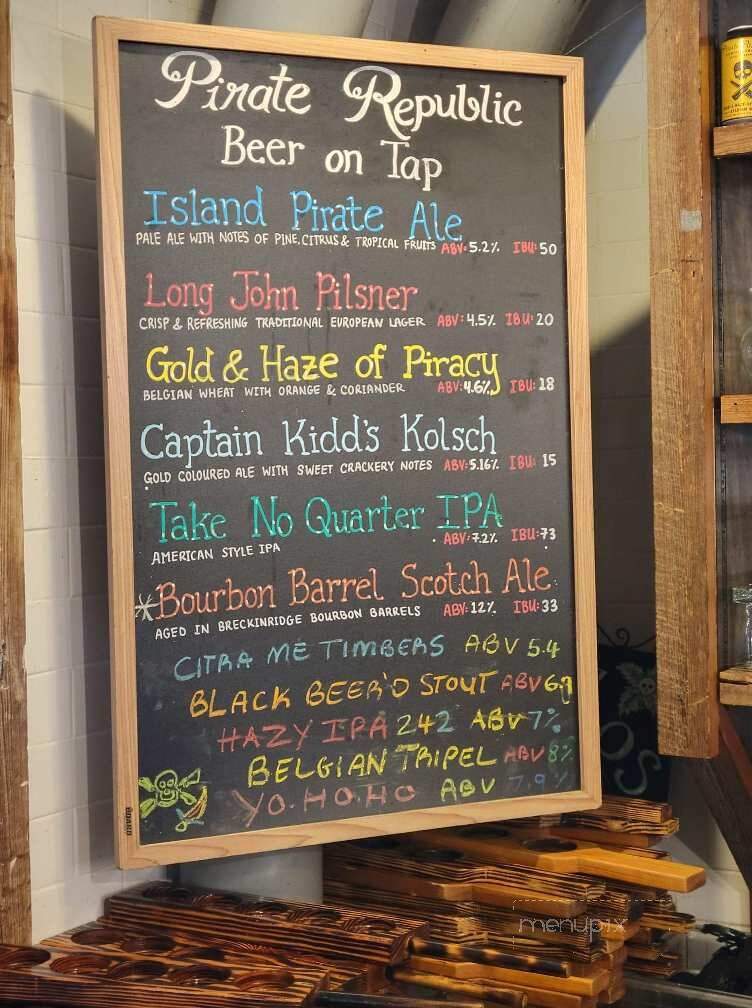 Pirate Republic
Beer on Tap
Island Pirate Ale
PALE ALE WITH NOTES OF PINE, CITRUS & TROPICAL FRUITS ABV: 5.2% IBU: 50
Long John Pilsner
CRISP & REFRESHING TRADITIONAL EUROPEAN LAGER ABV: 4.5% IBU: 20
Gold & Haze of Piracy
BELGIAN WHEAT WITH ORANGE & CORIANDER ABV: 4.6% IBU: 18
Captain Kidd's Kolsch
GOLD COLOURED ALE WITH SWEET CRACKERY NOTES ABV: 5.16% IBU: 15
Take No Quarter IPA
AMERICAN STYLE IPA ABV: 7.2% IBU: 73
*Bourbon Barrel Scotch Ale
AGED IN BRECKINRIDGE BOURBON BARRELS ABV: 12% IBU: 33
CITRA ME TIMBERS ABV 5.4
BLACK BEER'D STOUT ABV
HAZY IPA 242 ABV 7%
BELGIAN TRIPEL ABV 8%
YO HO HO ABV 7.9%
menupix